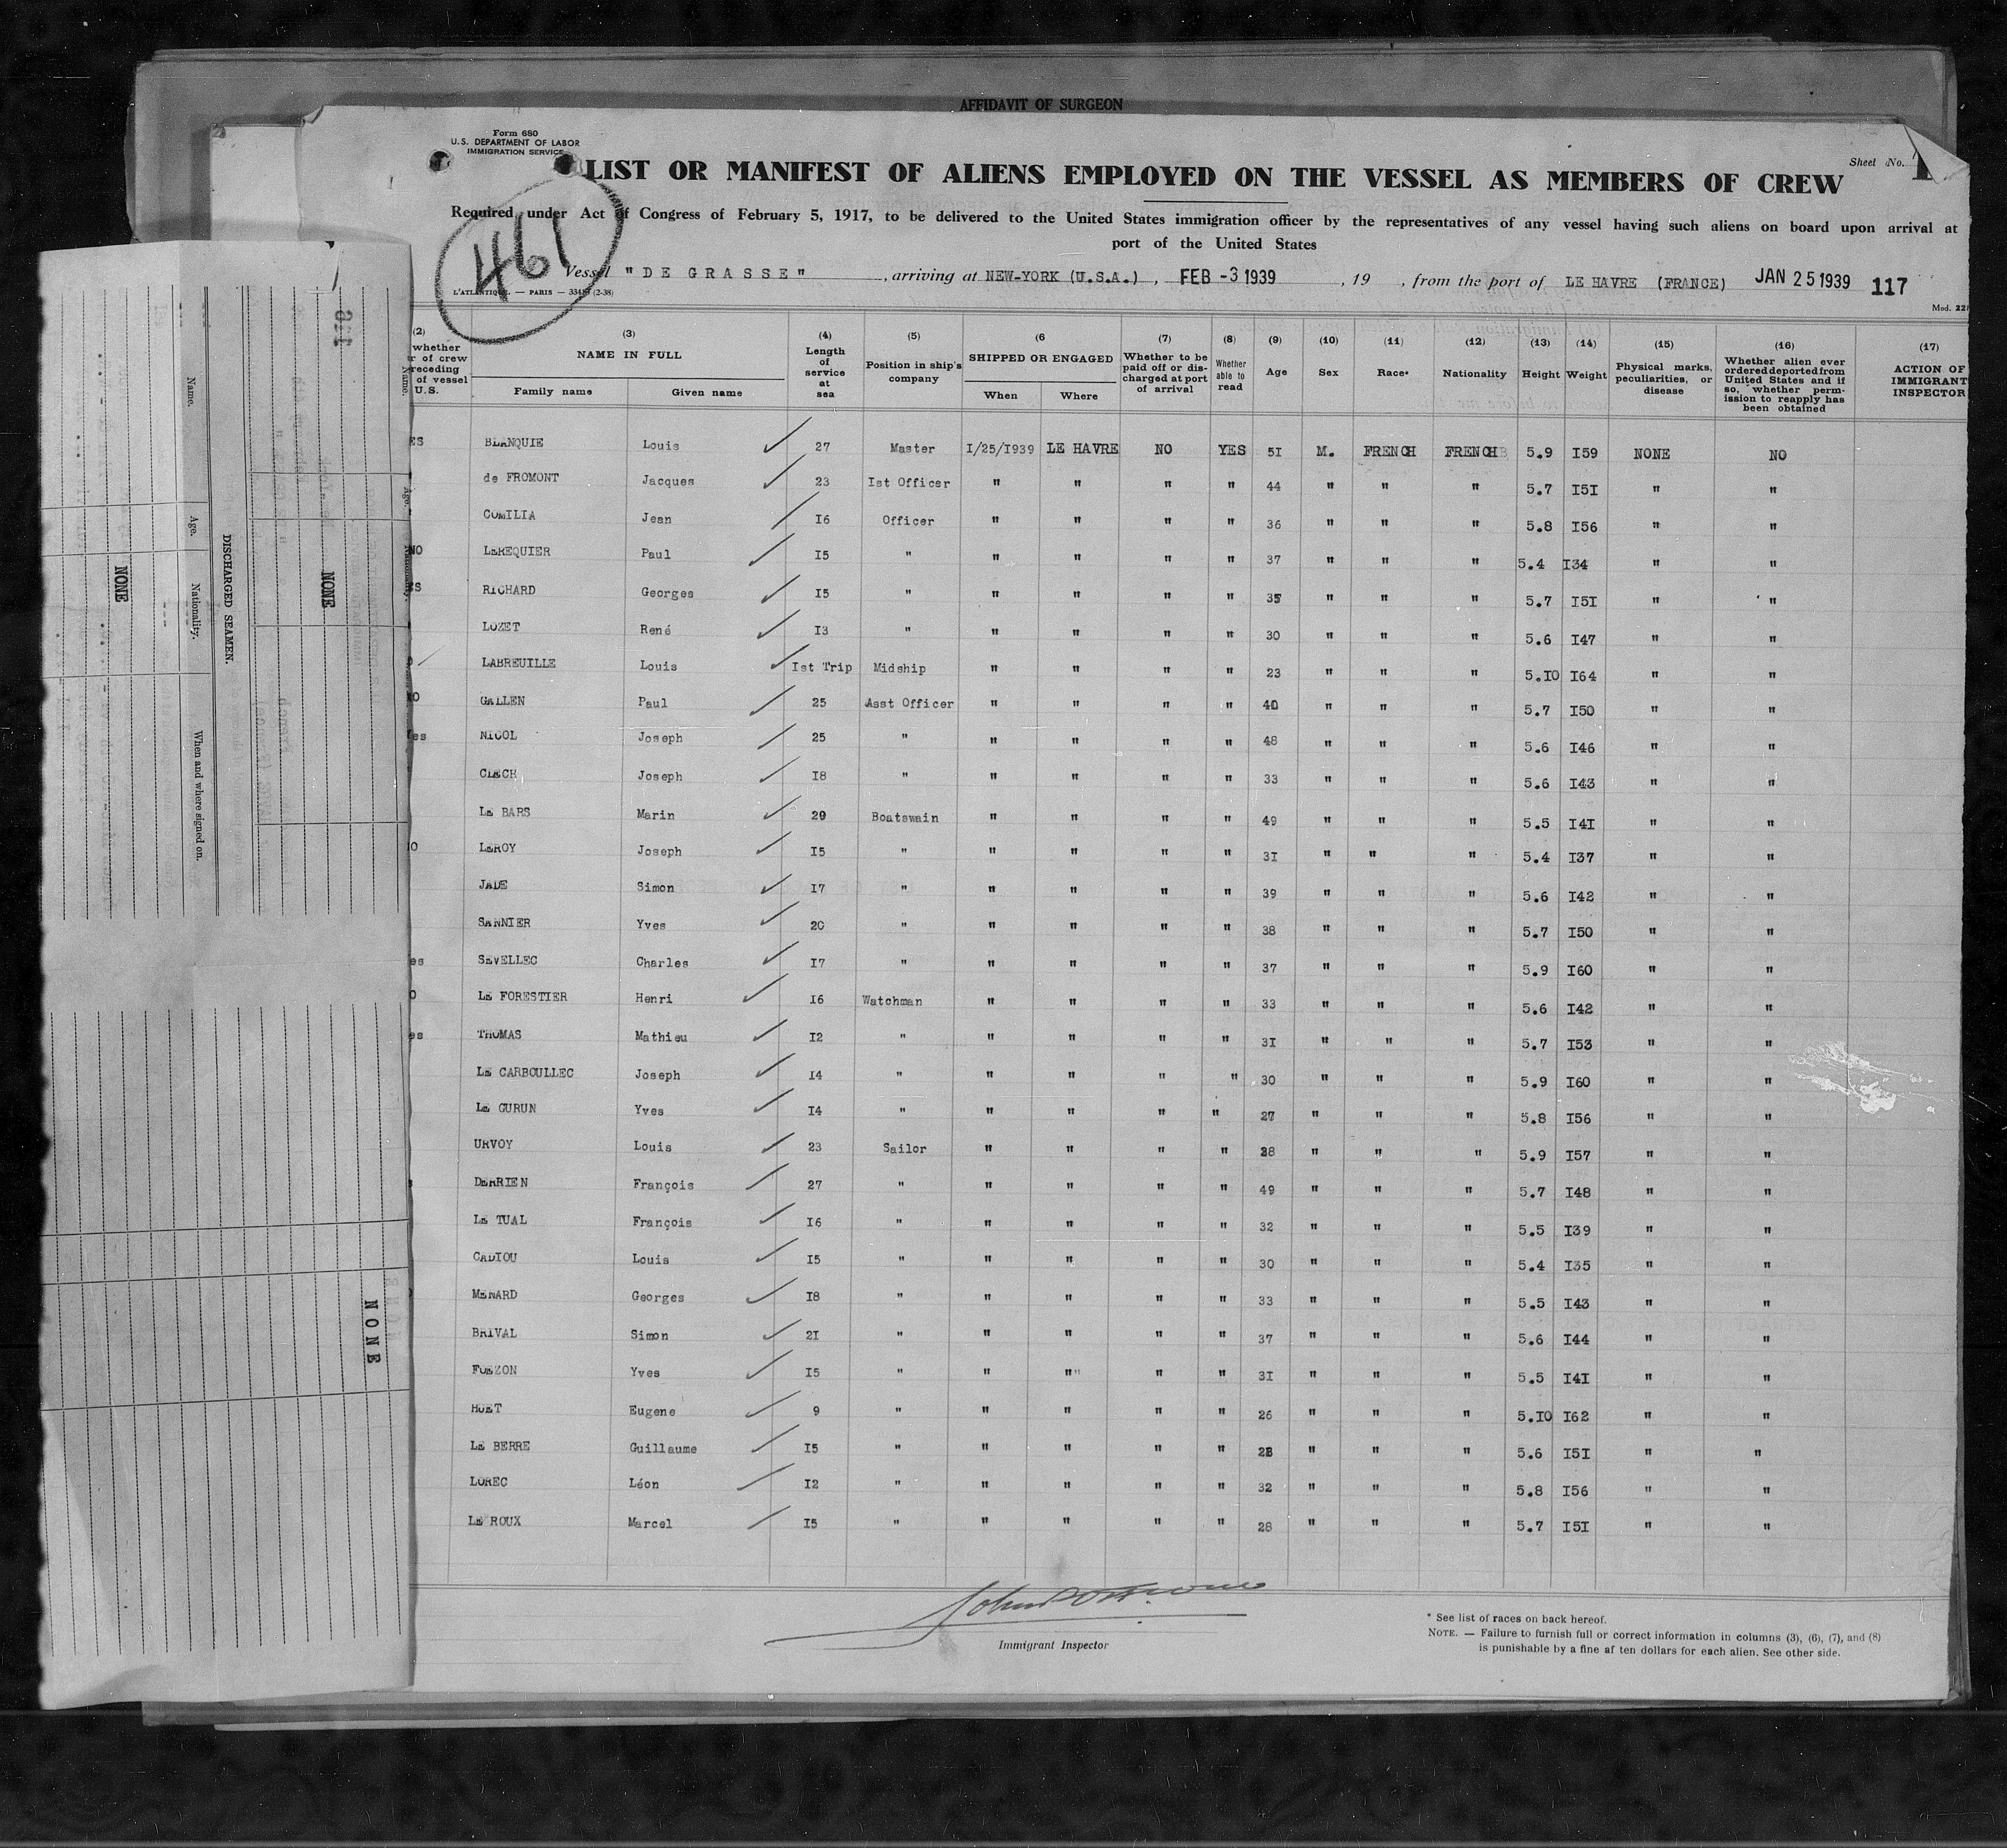 AFFIDAVIT OF SURGEON
Form 680
U.S. DEPARTMENT OF LABOR
IMMIGRATION SERVICE
Sheet No. 1
LIST OR MANIFEST OF ALIENS EMPLOYED ON THE VESSEL AS MEMBERS OF CREW
Required under Act of Congress of February 5, 1917, to be delivered to the United States immigration officer by the representatives of any vessel having such aliens on board upon arrival at
port of the United States
461
Vessel "DE GRASSE", arriving at NEW-YORK (U.S.A.), FEB -3 1939, 19 , from the port of LE HAVRE (FRANCE) JAN 25 1939 117
L'ATLANTIQUE. — PARIS — (2-38)
Mod. 22
(2) (3) (4) (5) (6 (7) (8) (9) (10) (11) (12) (13) (14) (15) (16) (17)
whether r of crew receding of vessel U.S. NAME IN FULL Length of service at sea Position in ship's company SHIPPED OR ENGAGED Whether to be paid off or discharged at port of arrival Whether able to read Age Sex Race* Nationality Height Weight Physical marks, peculiarities, or disease Whether alien ever ordered deported from United States and if so, whether permission to reapply has been obtained ACTION OF IMMIGRANT INSPECTOR
Family name Given name When Where
ES BLANQUIE Louis 27 Master 1/25/1939 LE HAVRE NO YES 51 M. FRENCH FRENCH 5.9 159 NONE NO
de FROMONT Jacques 23 1st Officer " " " " 44 " " " 5.7 151 " "
COMILIA Jean 16 Officer " " " " 36 " " " 5.8 156 " "
NO LEREQUIER Paul 15 " " " " " 37 " " " 5.4 134 " "
ES RICHARD Georges 15 " " " " " 35 " " " 5.7 151 " "
LOZET René 13 " " " " " 30 " " " 5.6 147 " "
LABREUILLE Louis 1st Trip Midship " " " " 23 " " " 5.10 164 " "
NO GALLEN Paul 25 Asst Officer " " " " 40 " " " 5.7 150 " "
es NICOL Joseph 25 " " " " " 48 " " " 5.6 146 " "
CLECH Joseph 18 " " " " " 33 " " " 5.6 143 " "
LE BARS Marin 29 Boatswain " " " " 49 " " " 5.5 141 " "
O LEROY Joseph 15 " " " " " 31 " " " 5.4 137 " "
JADE Simon 17 " " " " " 39 " " " 5.6 142 " "
SANNIER Yves 20 " " " " " 38 " " " 5.7 150 " "
es SEVELLEC Charles 17 " " " " " 37 " " " 5.9 160 " "
O LE FORESTIER Henri 16 Watchman " " " " 33 " " " 5.6 142 " "
es THOMAS Mathieu 12 " " " " " 31 " " " 5.7 153 " "
LE CARBOULLEC Joseph 14 " " " " " 30 " " " 5.9 160 " "
LE GURUN Yves 14 " " " " " 27 " " " 5.8 156 " "
URVOY Louis 23 Sailor " " " " 38 " " " 5.9 157 " "
DERRIEN François 27 " " " " " 49 " " " 5.7 148 " "
LE TUAL François 16 " " " " " 32 " " " 5.5 139 " "
CADIOU Louis 15 " " " " " 30 " " " 5.4 135 " "
MENARD Georges 18 " " " " " 33 " " " 5.5 143 " "
BRIVAL Simon 21 " " " " " 37 " " " 5.6 144 " "
FOEZON Yves 15 " " " " " 31 " " " 5.5 141 " "
HUET Eugene 9 " " " " " 26 " " " 5.10 162 " "
LE BERRE Guillaume 15 " " " " " 28 " " " 5.6 151 " "
LOREC Léon 12 " " " " " 32 " " " 5.8 156 " "
LE ROUX Marcel 15 " " " " " 28 " " " 5.7 151 " "
Immigrant Inspector
* See list of races on back hereof.
NOTE. — Failure to furnish full or correct information in columns (3), (6), (7), and (8)
is punishable by a fine af ten dollars for each alien. See other side.
Name.
Age.
Nationality.
When and where signed on.
DISCHARGED SEAMEN.
NONE
NONE
NONE
Name.
Age.
Nationality.